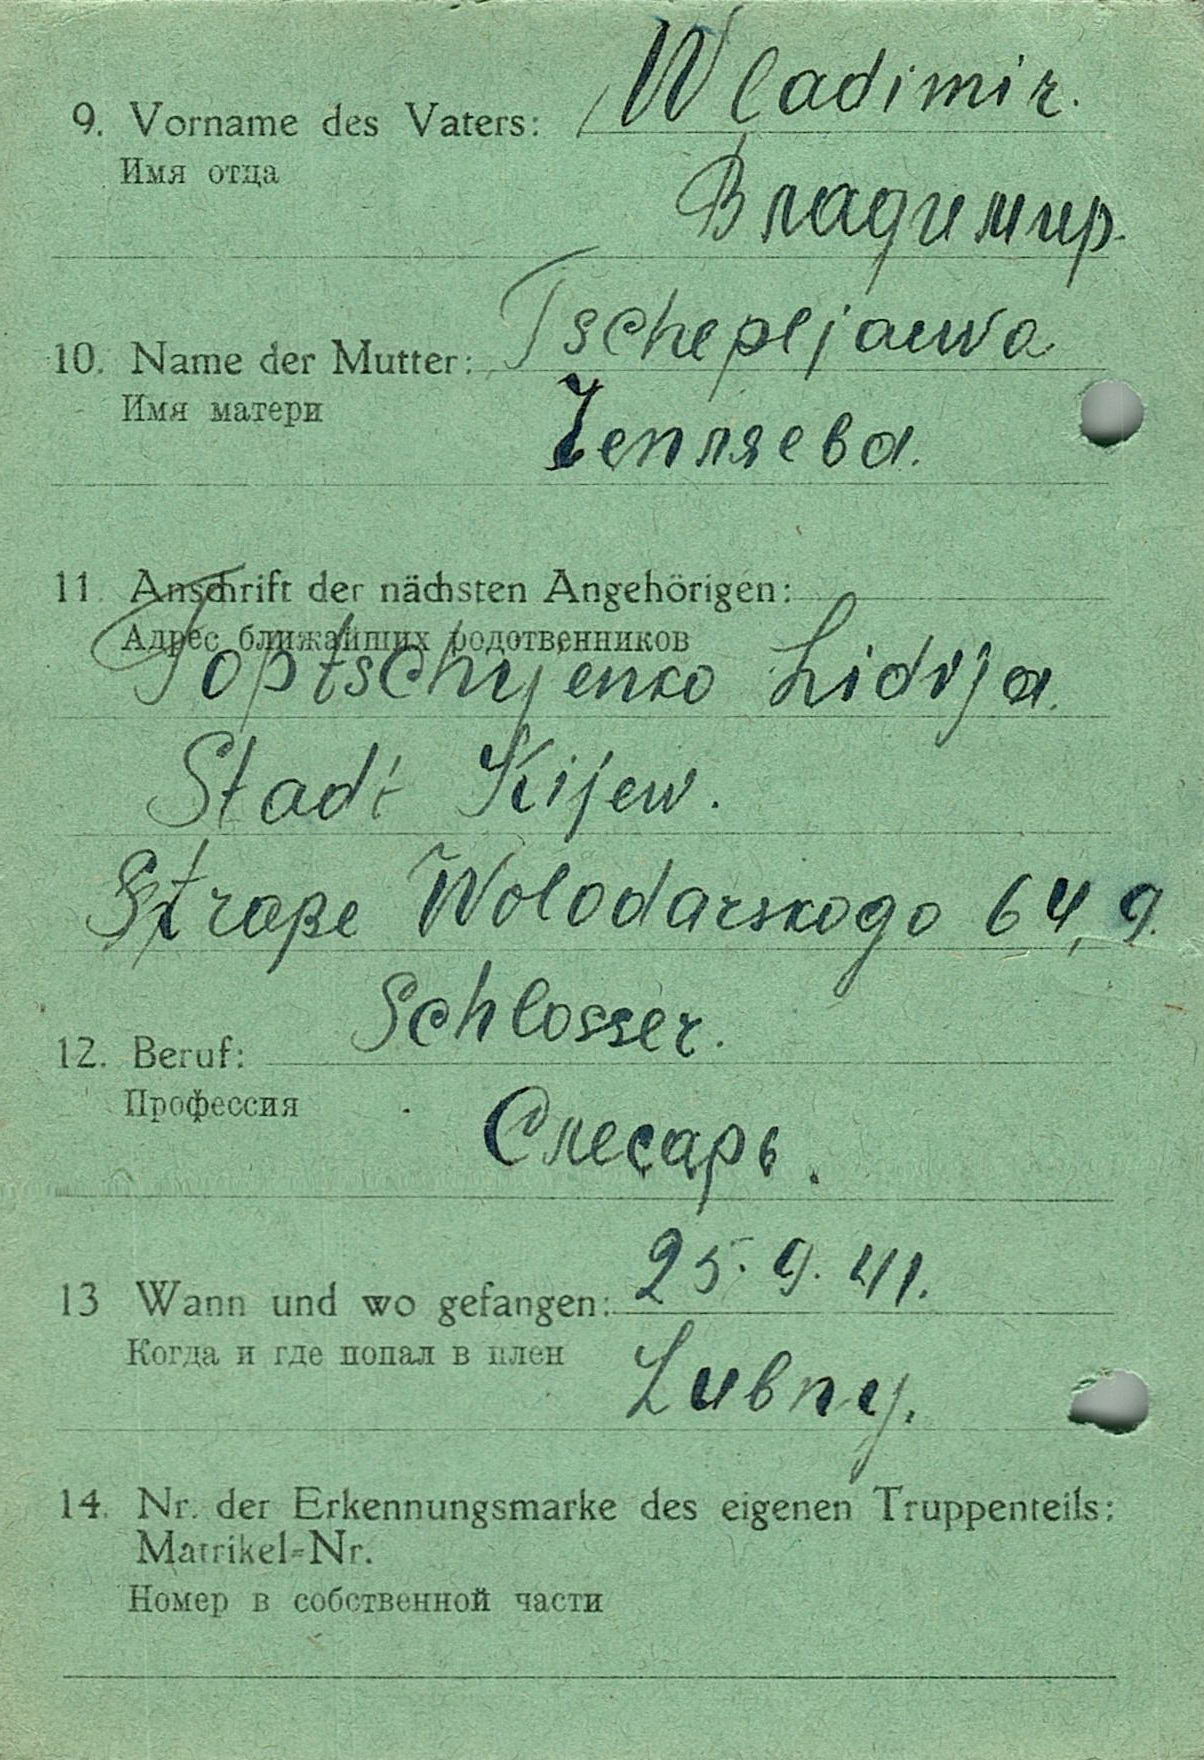 9. Vorname des Vaters: Wladimir.
Имя отца
Владимир.
10. Name der Mutter: Tschepljaewa
Имя матери
Чепляева.
11. Anschrift der nächsten Angehörigen:
Адрес ближайших родотвенников
Toptschyjenko Lidija.
Stadt Kijew.
Straße Wolodarskogo 64, 9.
12. Beruf: Schlosser.
Профессия
Слесарь.
13 Wann und wo gefangen: 25. 9. 41.
Когда и где попал в плен
Lubny.
14. Nr. der Erkennungsmarke des eigenen Truppenteils:
Matrikel=Nr.
Номер в собственной части